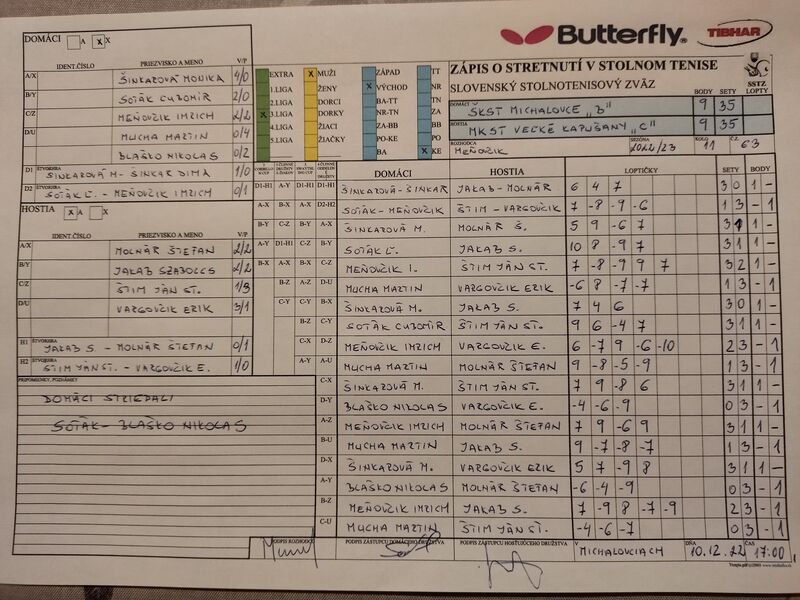 Butterfly
TIBHAR
DOMÁCI A X X
IDENT.ČÍSLO PRIEZVISKO A MENO V/P
A/X ŠINKAROVÁ MONIKA 4/0
B/Y SOTÁK ĽUBOMÍR 2/0
C/Z MEŇOVČIK IMRICH 2/2
D/U MUCHA MARTIN 0/4
BLAŠKO NIKOLAS 0/2
D1 ŠTVORHRA ŠINKAROVÁ M- ŠINKAR DIMA 1/0
D2 ŠTVORHRA SOTÁK Ľ. - MEŇOVČIK IMRICH 0/1
HOSTIA A X X
IDENT.ČÍSLO PRIEZVISKO A MENO V/P
A/X MOLNÁR ŠTEFAN 2/2
B/Y JAKAB SZABOLCS 2/2
C/Z ŠTIM JÁN ST. 1/3
D/U VARGOVČIK ERIK 3/1
H1 ŠTVORHRA JAKAB S - MOLNÁR ŠTEFAN 0/1
H2 ŠTVORHRA ŠTIM JÁN ST. - VARGOVČIK E. 1/0
PRIPOMIENKY, POZNÁMKY
DOMÁCI STRIEDALI
SOTÁK - BLAŠKO NIKOLAS
EXTRA X MUŽI ZÁPAD TT
1.LIGA ŽENY X VÝCHOD NR
2.LIGA DORCI BA-TT TN
X 3.LIGA DORKY NR-TN ZA
4.LIGA ŽIACI ZA-BB BB
5.LIGA ŽIAČKY PO-KE PO
BA X KE
ZÁPIS O STRETNUTÍ V STOLNOM TENISE
SLOVENSKÝ STOLNOTENISOVÝ ZVÄZ
SSTZ
BODY SETY LOPTY
DOMÁCI ŠKST MICHALOVCE "B" 9 35
HOSTIA MKST VEĽKÉ KAPUŠANY "C" 9 35
ROZHODCA MEŇOVČIK SEZÓNA 2022/23 KOLO 11 Č.Z. 63
DOMÁCI HOSTIA LOPTIČKY SETY BODY
D1-H1 A-Y D1-H1 D1-H1 ŠINKAROVÁ - ŠINKAR JAKAB - MOLNÁR 6 4 7 3 0 1 -
A-X B-X A-X D2-H2 SOTÁK - MEŇOVČIK ŠTIM - VARGOVČIK 7 -8 -9 -6 1 3 - 1
B-Y C-Z B-Y A-X ŠINKAROVÁ M. MOLNÁR Š. 5 9 -6 7 3 1 1 -
A-Y D1-H1 C-Z B-Y SOTÁK Ľ. JAKAB S. 10 8 -9 7 3 1 1 -
B-X A-X B-X C-Z MEŇOVČIK I. ŠTIM JÁN ST. 7 -8 -9 9 7 3 2 1 -
B-Z A-Z D-U MUCHA MARTIN VARGOVČIK ERIK -6 8 -7 -7 1 3 - 1
C-Y C-Y B-X ŠINKAROVÁ M. JAKAB S. 7 4 6 3 0 1 -
B-Z C-Y SOTÁK ĽUBOMÍR ŠTIM JÁN ST. 9 6 -4 7 3 1 1 -
C-X D-Z MEŇOVČIK IMRICH VARGOVČIK E. 6 -7 9 -6 -10 2 3 - 1
A-Y A-U MUCHA MARTIN MOLNÁR ŠTEFAN 9 -8 -5 -9 1 3 - 1
C-X ŠINKAROVÁ M. ŠTIM JÁN ST. 7 9 -8 6 3 1 1 -
D-Y BLAŠKO NIKOLAS VARGOVČIK E. -4 -6 -9 0 3 - 1
A-Z MEŇOVČIK IMRICH MOLNÁR ŠTEFAN 7 9 -6 9 3 1 1 -
B-U MUCHA MARTIN JAKAB S. 9 -7 -8 -7 1 3 - 1
D-X ŠINKAROVÁ M. VARGOVČIK ERIK 5 7 -9 8 3 1 1 -
A-Y BLAŠKO NIKOLAS MOLNÁR ŠTEFAN -6 -4 -9 0 3 - 1
B-Z MEŇOVČIK IMRICH JAKAB S. 7 -9 8 -7 -9 2 3 - 1
C-U MUCHA MARTIN ŠTIM JÁN ST. -4 -6 -7 0 3 - 1
PODPIS ROZHODCU PODPIS ZÁSTUPCU DOMÁCEHO DRUŽSTVA PODPIS ZÁSTUPCU HOSŤUJÚCEHO DRUŽSTVA V MICHALOVCIACH DŇA 10.12.22 17:00